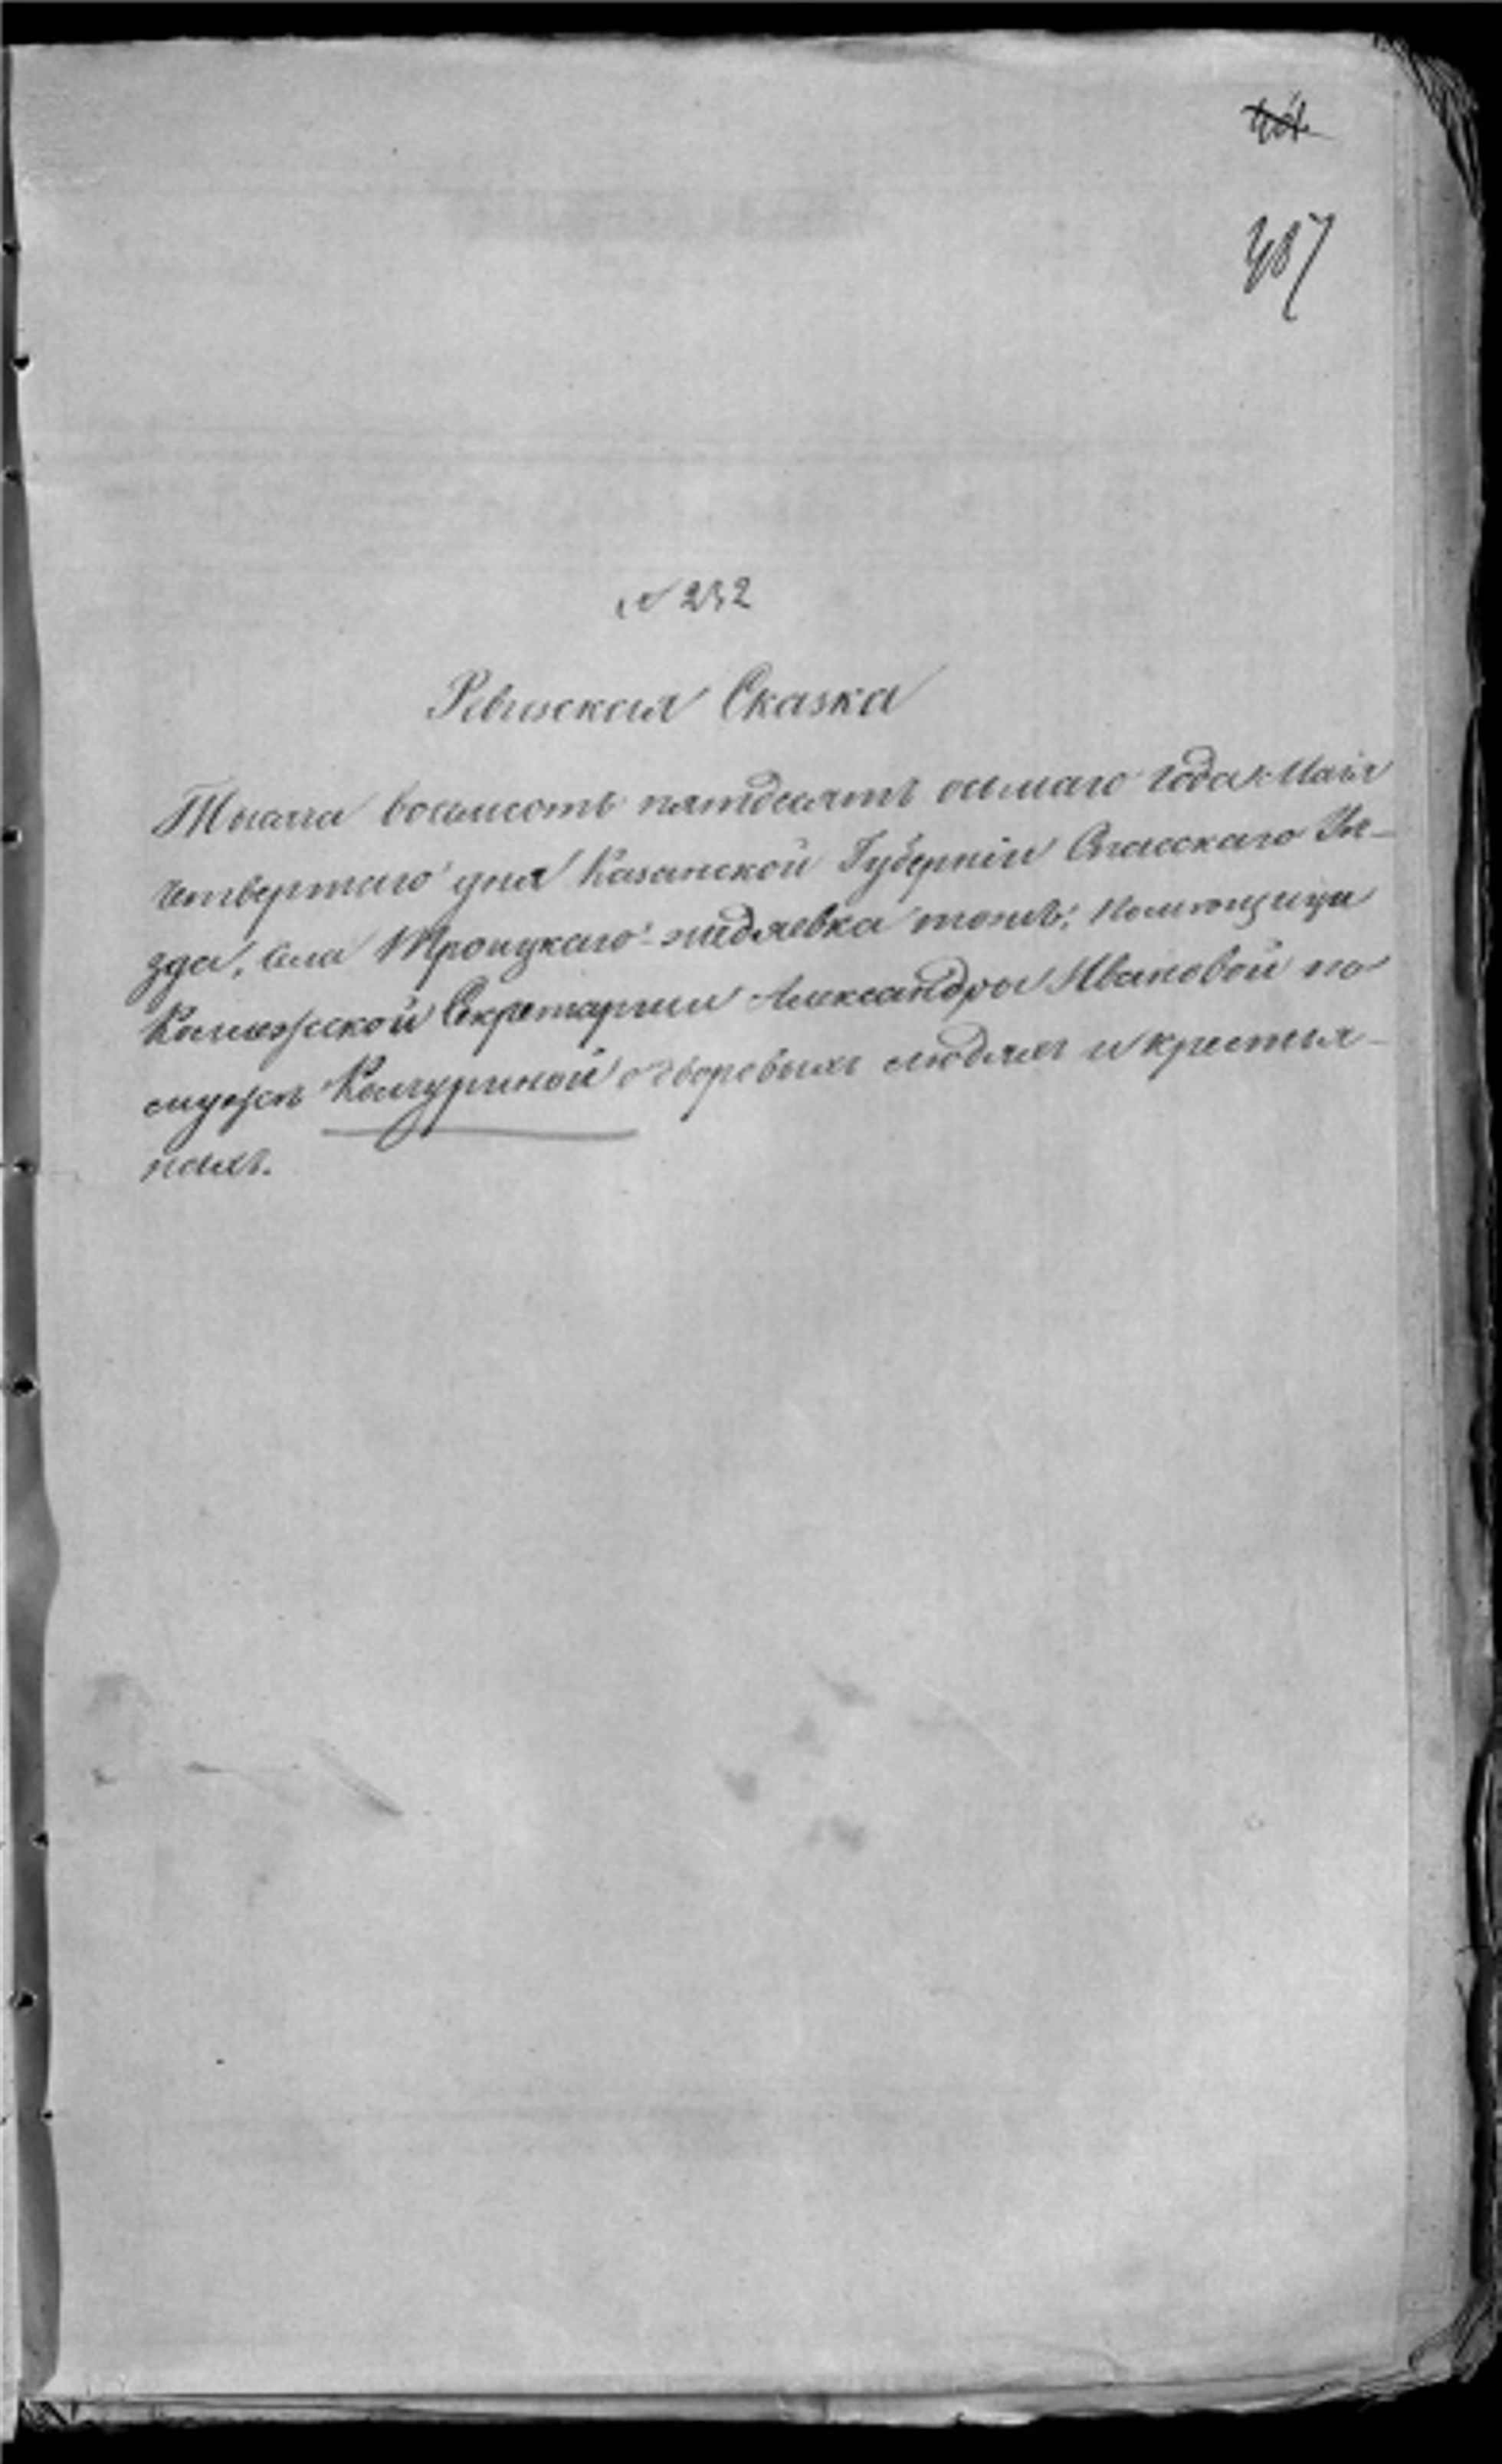 487
№ 232
Ревизская Сказка
Тысяча восемсотъ пятдесятъ осьмаго года Маія
четвертаго дня Казанской Губерніи Спасскаго Уѣ-
зда, села Троицкаго тожъ, помѣщицы
Коллежской Секретарши Александры Ивановой по
мужѣ о дворовыхъ людяхъ и крестья-
нахъ.